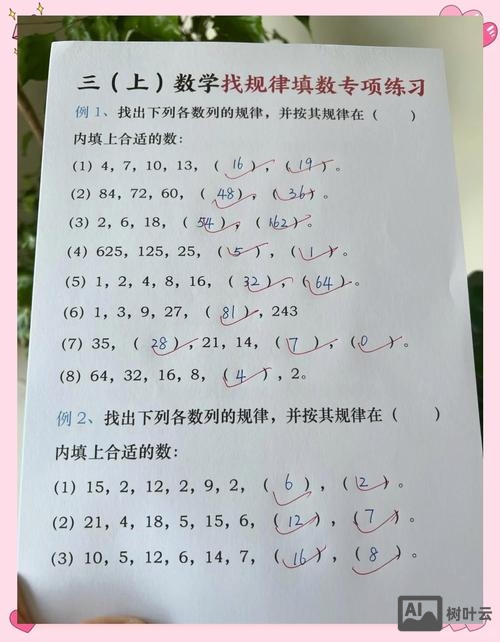 三（上）数学找规律填数专项练习
例 1、找出下列各数列的规律，并按其规律在（　　）
内填上合适的数：
(1) 4，7，10，13，（ 16 ），（ 19 ）。
(2) 84，72，60，（ 48 ），（ 36 ）。
(3) 2，6，18，（ 54 ），（ 162 ）。
(4) 625，125，25，（ 5 ），（ 1 ）。
(5) 1，2，4，8，16，（ 32 ），（ 64 ）。
(6) 1，3，9，27，（ 81 ），243
(7) 35，（ 28 ），21，14，（ 7 ），（ 0 ）。
(8) 64，32，16，8，（ 4 ），2。
例 2、找出下列各数列的规律，并按其规律在（　　）
内填上合适的数：
(1) 15，2，12，2，9，2，（ 6 ），（ 2 ）。
(2) 21，4，18，5，15，6，（ 12 ），（ 7 ）。
(3) 10，5，12，6，14，7，（ 16 ），（ 8 ）。
AI 树叶云